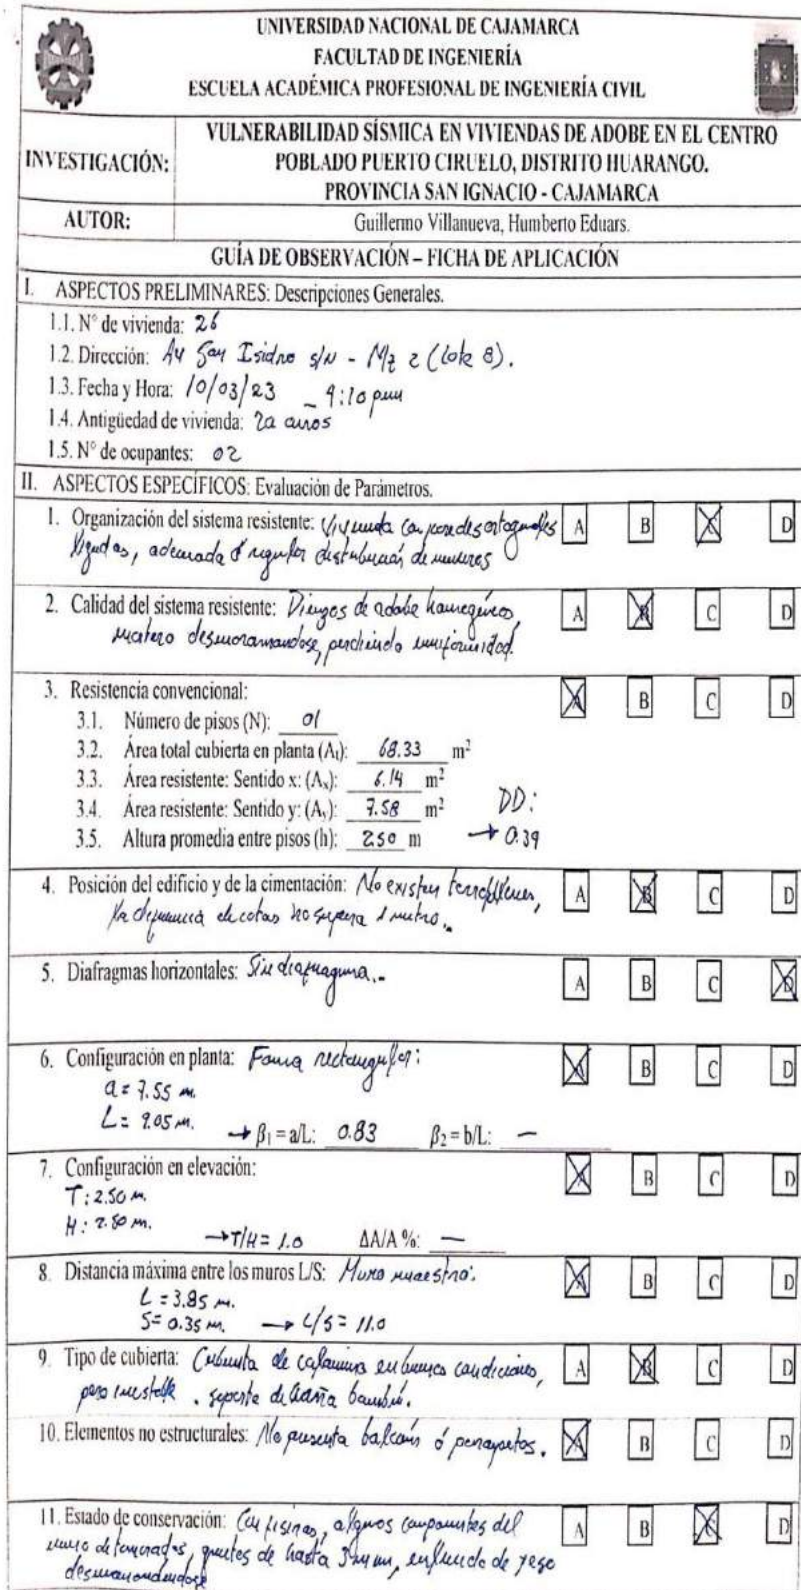 UNIVERSIDAD NACIONAL DE CAJAMARCA
FACULTAD DE INGENIERÍA
ESCUELA ACADÉMICA PROFESIONAL DE INGENIERÍA CIVIL
INVESTIGACIÓN:
VULNERABILIDAD SÍSMICA EN VIVIENDAS DE ADOBE EN EL CENTRO
POBLADO PUERTO CIRUELO, DISTRITO HUARANGO.
PROVINCIA SAN IGNACIO - CAJAMARCA
AUTOR: Guillermo Villanueva, Humberto Eduars.
GUÍA DE OBSERVACIÓN – FICHA DE APLICACIÓN
I. ASPECTOS PRELIMINARES: Descripciones Generales.
1.1. N° de vivienda: 26
1.2. Dirección: Av San Isidro s/N - Mz 2 (lote 8).
1.3. Fecha y Hora: 10/03/23 - 4:10 pm
1.4. Antigüedad de vivienda: 20 años
1.5. N° de ocupantes: 02
II. ASPECTOS ESPECÍFICOS: Evaluación de Parámetros.
1. Organización del sistema resistente: Vivienda con paredes ortogonales A B C D
ligadas, adecuada ó regular distribución de muros
2. Calidad del sistema resistente: de adobe homogéneo, A B C D
mortero desmoronandose, perdiendo uniformidad.
3. Resistencia convencional: A B C D
3.1. Número de pisos (N): 01
3.2. Área total cubierta en planta (At): 68.33 m²
3.3. Área resistente: Sentido x: (Ax): 6.14 m²
3.4. Área resistente: Sentido y: (Ay): 7.58 m² DD:
3.5. Altura promedia entre pisos (h): 2.50 m → 0.39
4. Posición del edificio y de la cimentación: No existen terraplenes, A B C D
la diferencia de cotas no supera 1 metro.
5. Diafragmas horizontales: Sin diafragma.- A B C D
6. Configuración en planta: Forma rectangular: A B C D
a = 7.55 m.
L = 9.05 m. → β1 = a/L: 0.83 β2 = b/L: —
7. Configuración en elevación: A B C D
T: 2.50 m.
H: 2.50 m. → T/H = 1.0 ΔA/A %: —
8. Distancia máxima entre los muros L/S: Muro maestro: A B C D
L = 3.85 m.
S = 0.35 m. → L/S = 11.0
9. Tipo de cubierta: Cubierta de calamina en buenas condiciones, A B C D
pero inestable. soporte de caña bambú.
10. Elementos no estructurales: No presenta balcón ó parapetos. A B C D
11. Estado de conservación: Con fisuras, algunos componentes del A B C D
muro deteriorados, grietas de hasta mm, enlucido de yeso
desmoronandose